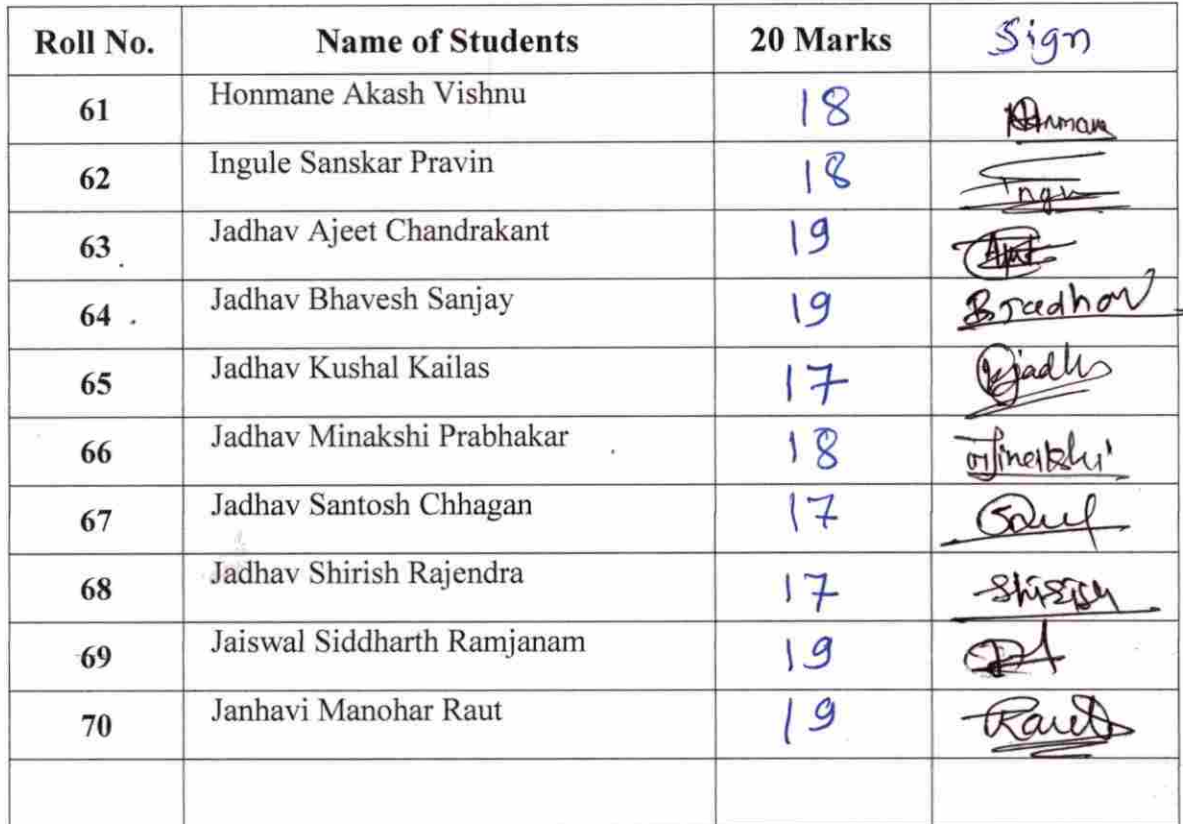 Roll No. Name of Students 20 Marks Sign
61 Honmane Akash Vishnu 18
62 Ingule Sanskar Pravin 18
63 Jadhav Ajeet Chandrakant 19
64 Jadhav Bhavesh Sanjay 19
65 Jadhav Kushal Kailas 17
66 Jadhav Minakshi Prabhakar 18
67 Jadhav Santosh Chhagan 17
68 Jadhav Shirish Rajendra 17
69 Jaiswal Siddharth Ramjanam 19
70 Janhavi Manohar Raut 19